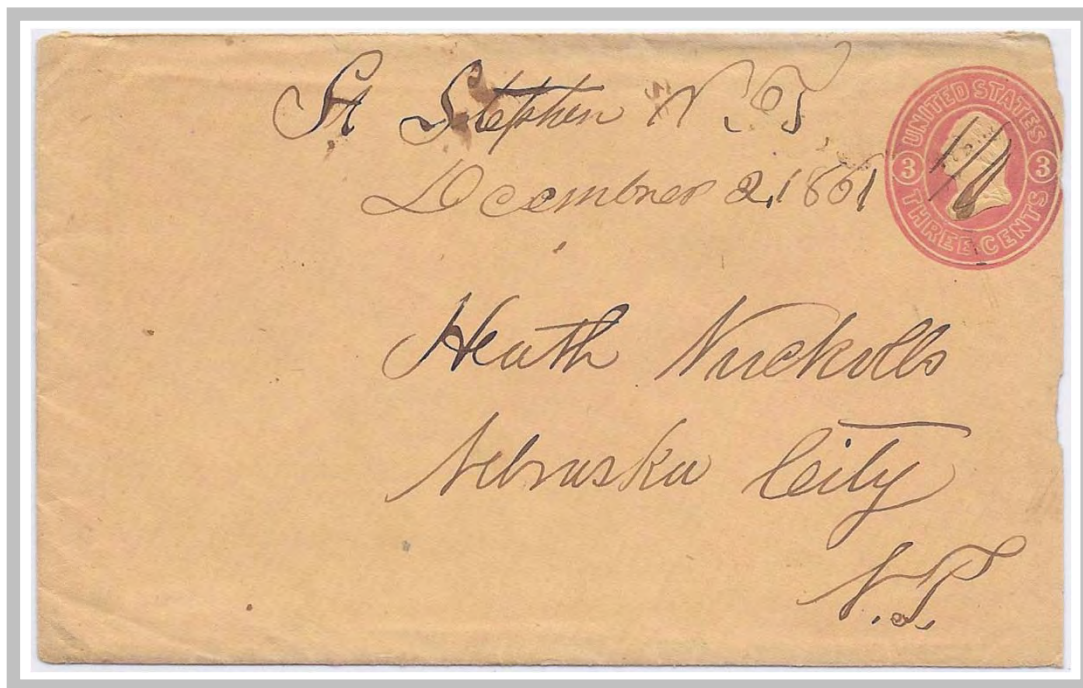 St Stephen N. T.
December 2, 1861
UNITED STATES
3 3
THREE CENTS
Heath Nuckolls
Nebraska City
N.T.